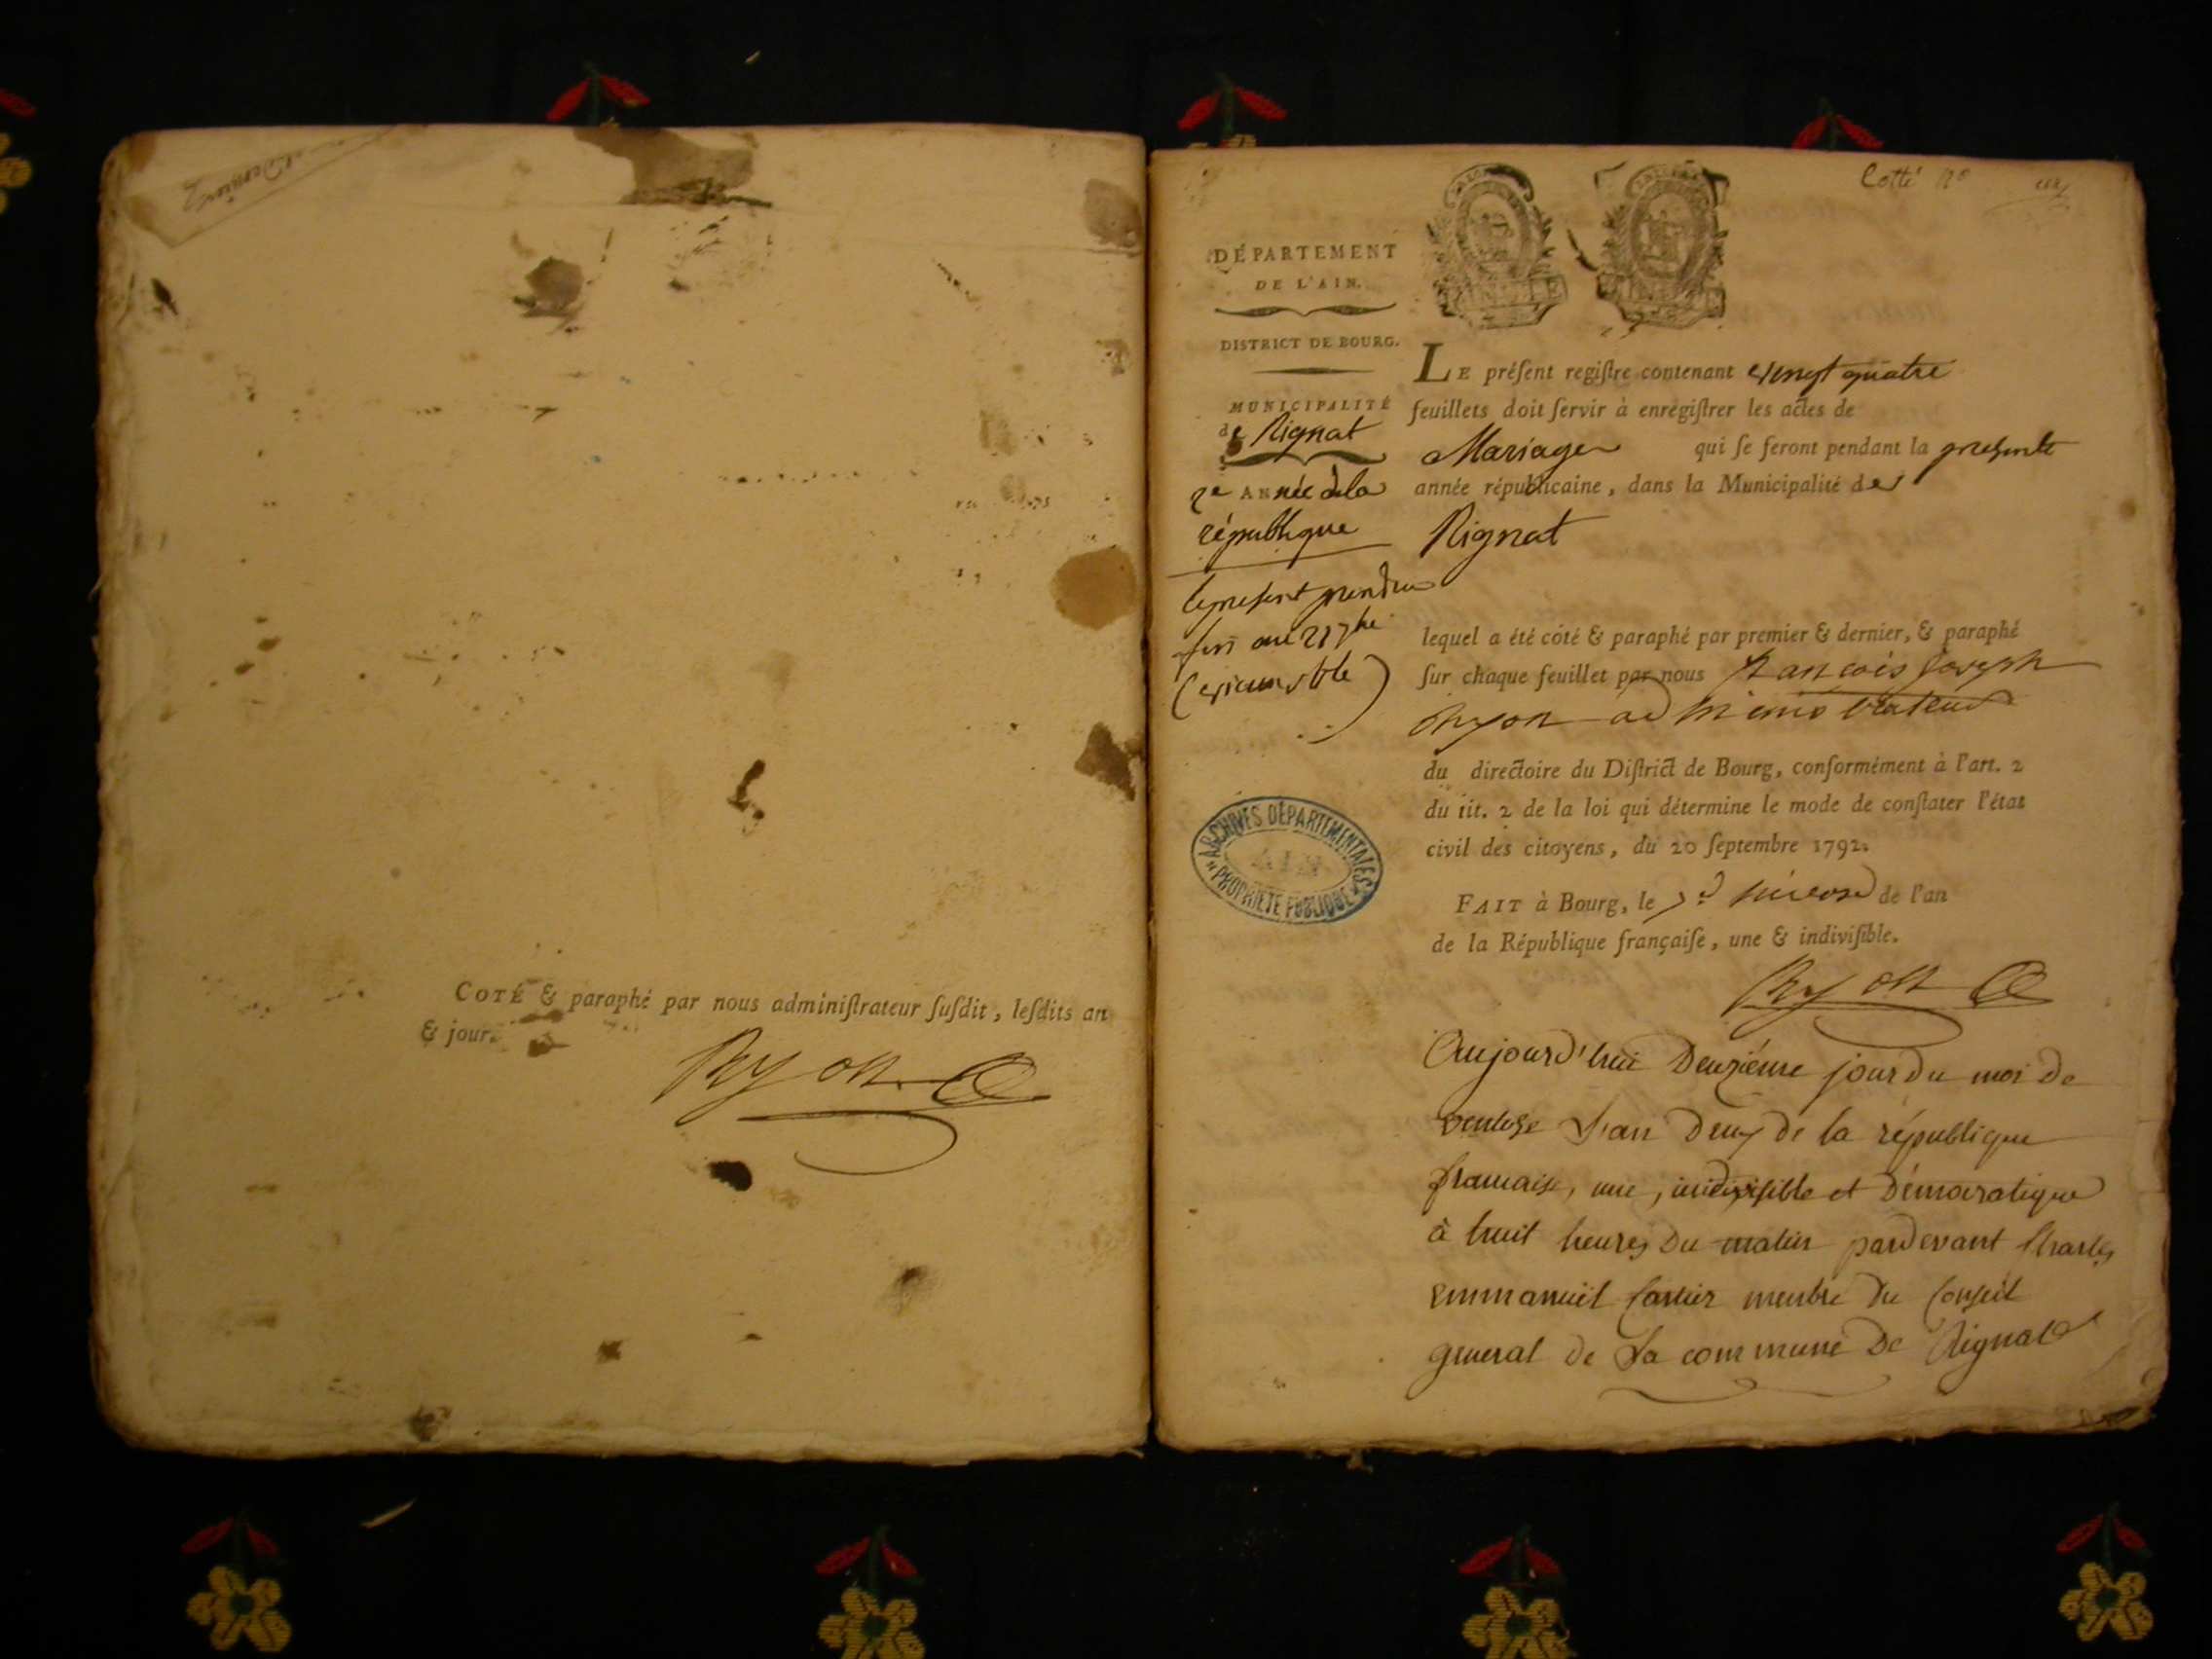 Dernier
COTÉ & paraphé par nous adminiſtrateur ſuſdit, leſdits an
& jour.
Cotté
DÉPARTEMENT
DE L'AIN.
DISTRICT DE BOURG.
MUNICIPALITÉ
de Rignat
2e ANnée dela
république
le present prendra
fin au
(vieux stile)
ARCHIVES DÉPARTEMENTALES
AIN
PROPRIÉTÉ PUBLIQUE
LE préſent regiſtre contenant vingt quatre
feuillets doit ſervir à enregiſtrer les actes de
Mariage qui ſe feront pendant la presente
année républicaine, dans la Municipalité de
Rignat
lequel a été côté & paraphé par premier & dernier, & paraphé
ſur chaque feuillet par nous francois Joseph
administrateur
du directoire du Diſtrict de Bourg, conformément à l'art. 2
du tit. 2 de la loi qui détermine le mode de conſtater l'état
civil des citoyens, du 20 ſeptembre 1792.
FAIT à Bourg, le nivose de l'an
de la République françaiſe, une & indiviſible.
Aujourd'hui Deuzième jour du moi de
ventose L'an Deux de la république
francaise, une, indivisible et Démocratique
à huit heures du matin pardevant Charles
Emmanuël Cartier membre du Conseil
general de La commune De Rignat